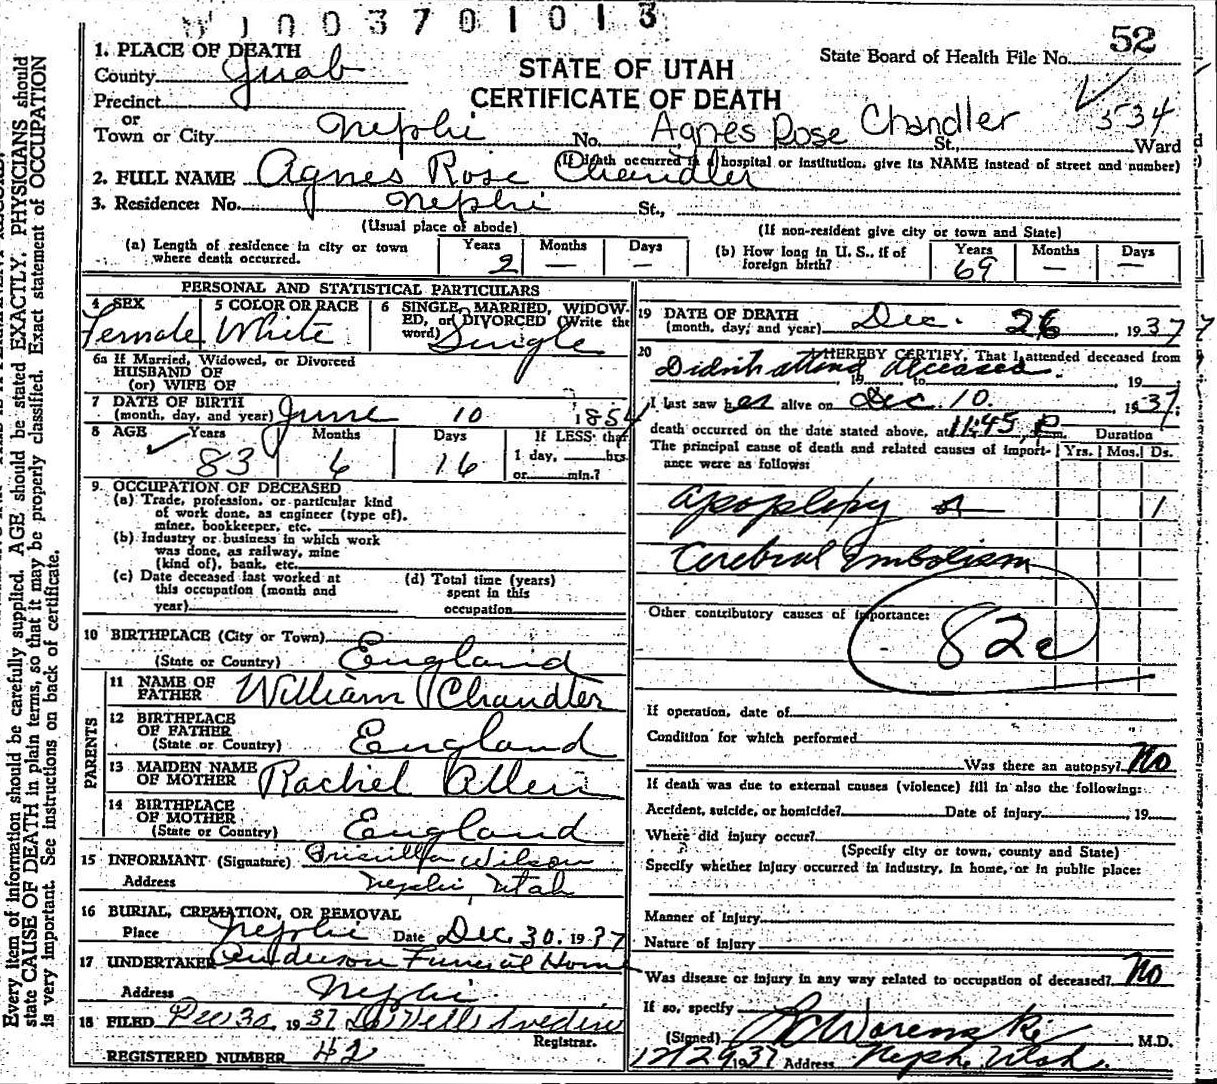 W J 0 0 3 7 0 1 0 1 3
52
State Board of Health File No.
534
STATE OF UTAH
CERTIFICATE OF DEATH
1. PLACE OF DEATH
County Juab
Precinct
or
Town or City Nephi No. Agnes Rose Chandler St., Ward
(If death occurred in a hospital or institution, give its NAME instead of street and number)
2. FULL NAME Agnes Rose Chandler
3. Residence: No. Nephi St.,
(Usual place of abode) (If non-resident give city or town and State)
(a) Length of residence in city or town where death occurred. Years 2 Months — Days —
(b) How long in U. S., if of foreign birth? Years 69 Months — Days —
PERSONAL AND STATISTICAL PARTICULARS
4 SEX Female
5 COLOR OR RACE White
6 SINGLE, MARRIED, WIDOWED, or DIVORCED (Write the word) Single
6a If Married, Widowed, or Divorced
HUSBAND OF
(or) WIFE OF
7 DATE OF BIRTH
(month, day, and year) June 10 1854
8 AGE Years 83 Months 6 Days 16 If LESS than
1 day, hrs.
or min.?
9. OCCUPATION OF DECEASED
(a) Trade, profession, or particular kind
of work done, as engineer (type of),
miner, bookkeeper, etc.
(b) Industry or business in which work
was done, as railway, mine
(kind of), bank, etc.
(c) Date deceased last worked at
this occupation (month and
year)
(d) Total time (years)
spent in this
occupation
10 BIRTHPLACE (City or Town)
(State or Country) England
11 NAME OF
FATHER William Chandler
12 BIRTHPLACE
OF FATHER
(State or Country) England
13 MAIDEN NAME
OF MOTHER Rachel Allen
14 BIRTHPLACE
OF MOTHER
(State or Country) England
PARENTS
15 INFORMANT (Signature) Priscilla Wilson
Address Nephi, Utah
16 BURIAL, CREMATION, OR REMOVAL
Place Nephi Date Dec. 30, 1937
17 UNDERTAKER Anderson Funeral Home
Address Nephi
18 FILED Dec 30, 1937
Registrar.
REGISTERED NUMBER 42
19 DATE OF DEATH
(month, day, and year) Dec. 26 1937
20 I HEREBY CERTIFY, That I attended deceased from
Didnt attend deceased. 19 to 19
I last saw her alive on Dec. 10. 1937.
death occurred on the date stated above, at 11:45 P m.
The principal cause of death and related causes of importance were as follows:
Duration
Yrs. Mos. Ds.
apoplexy or 1
Cerebral Embolism
Other contributory causes of importance:
82a
If operation, date of
Condition for which performed
Was there an autopsy? No
If death was due to external causes (violence) fill in also the following:
Accident, suicide, or homicide? Date of injury 19
Where did injury occur?
(Specify city or town, county and State)
Specify whether injury occurred in industry, in home, or in public place:
Manner of injury
Nature of injury
Was disease or injury in any way related to occupation of deceased? No
If so, specify
(Signed) M.D.
12/29 1937 Address Nephi, Utah.
Every item of information should be carefully supplied. AGE should be stated EXACTLY. PHYSICIANS should
state CAUSE OF DEATH in plain terms, so that it may be properly classified. Exact statement of OCCUPATION
is very important. See instructions on back of certificate.